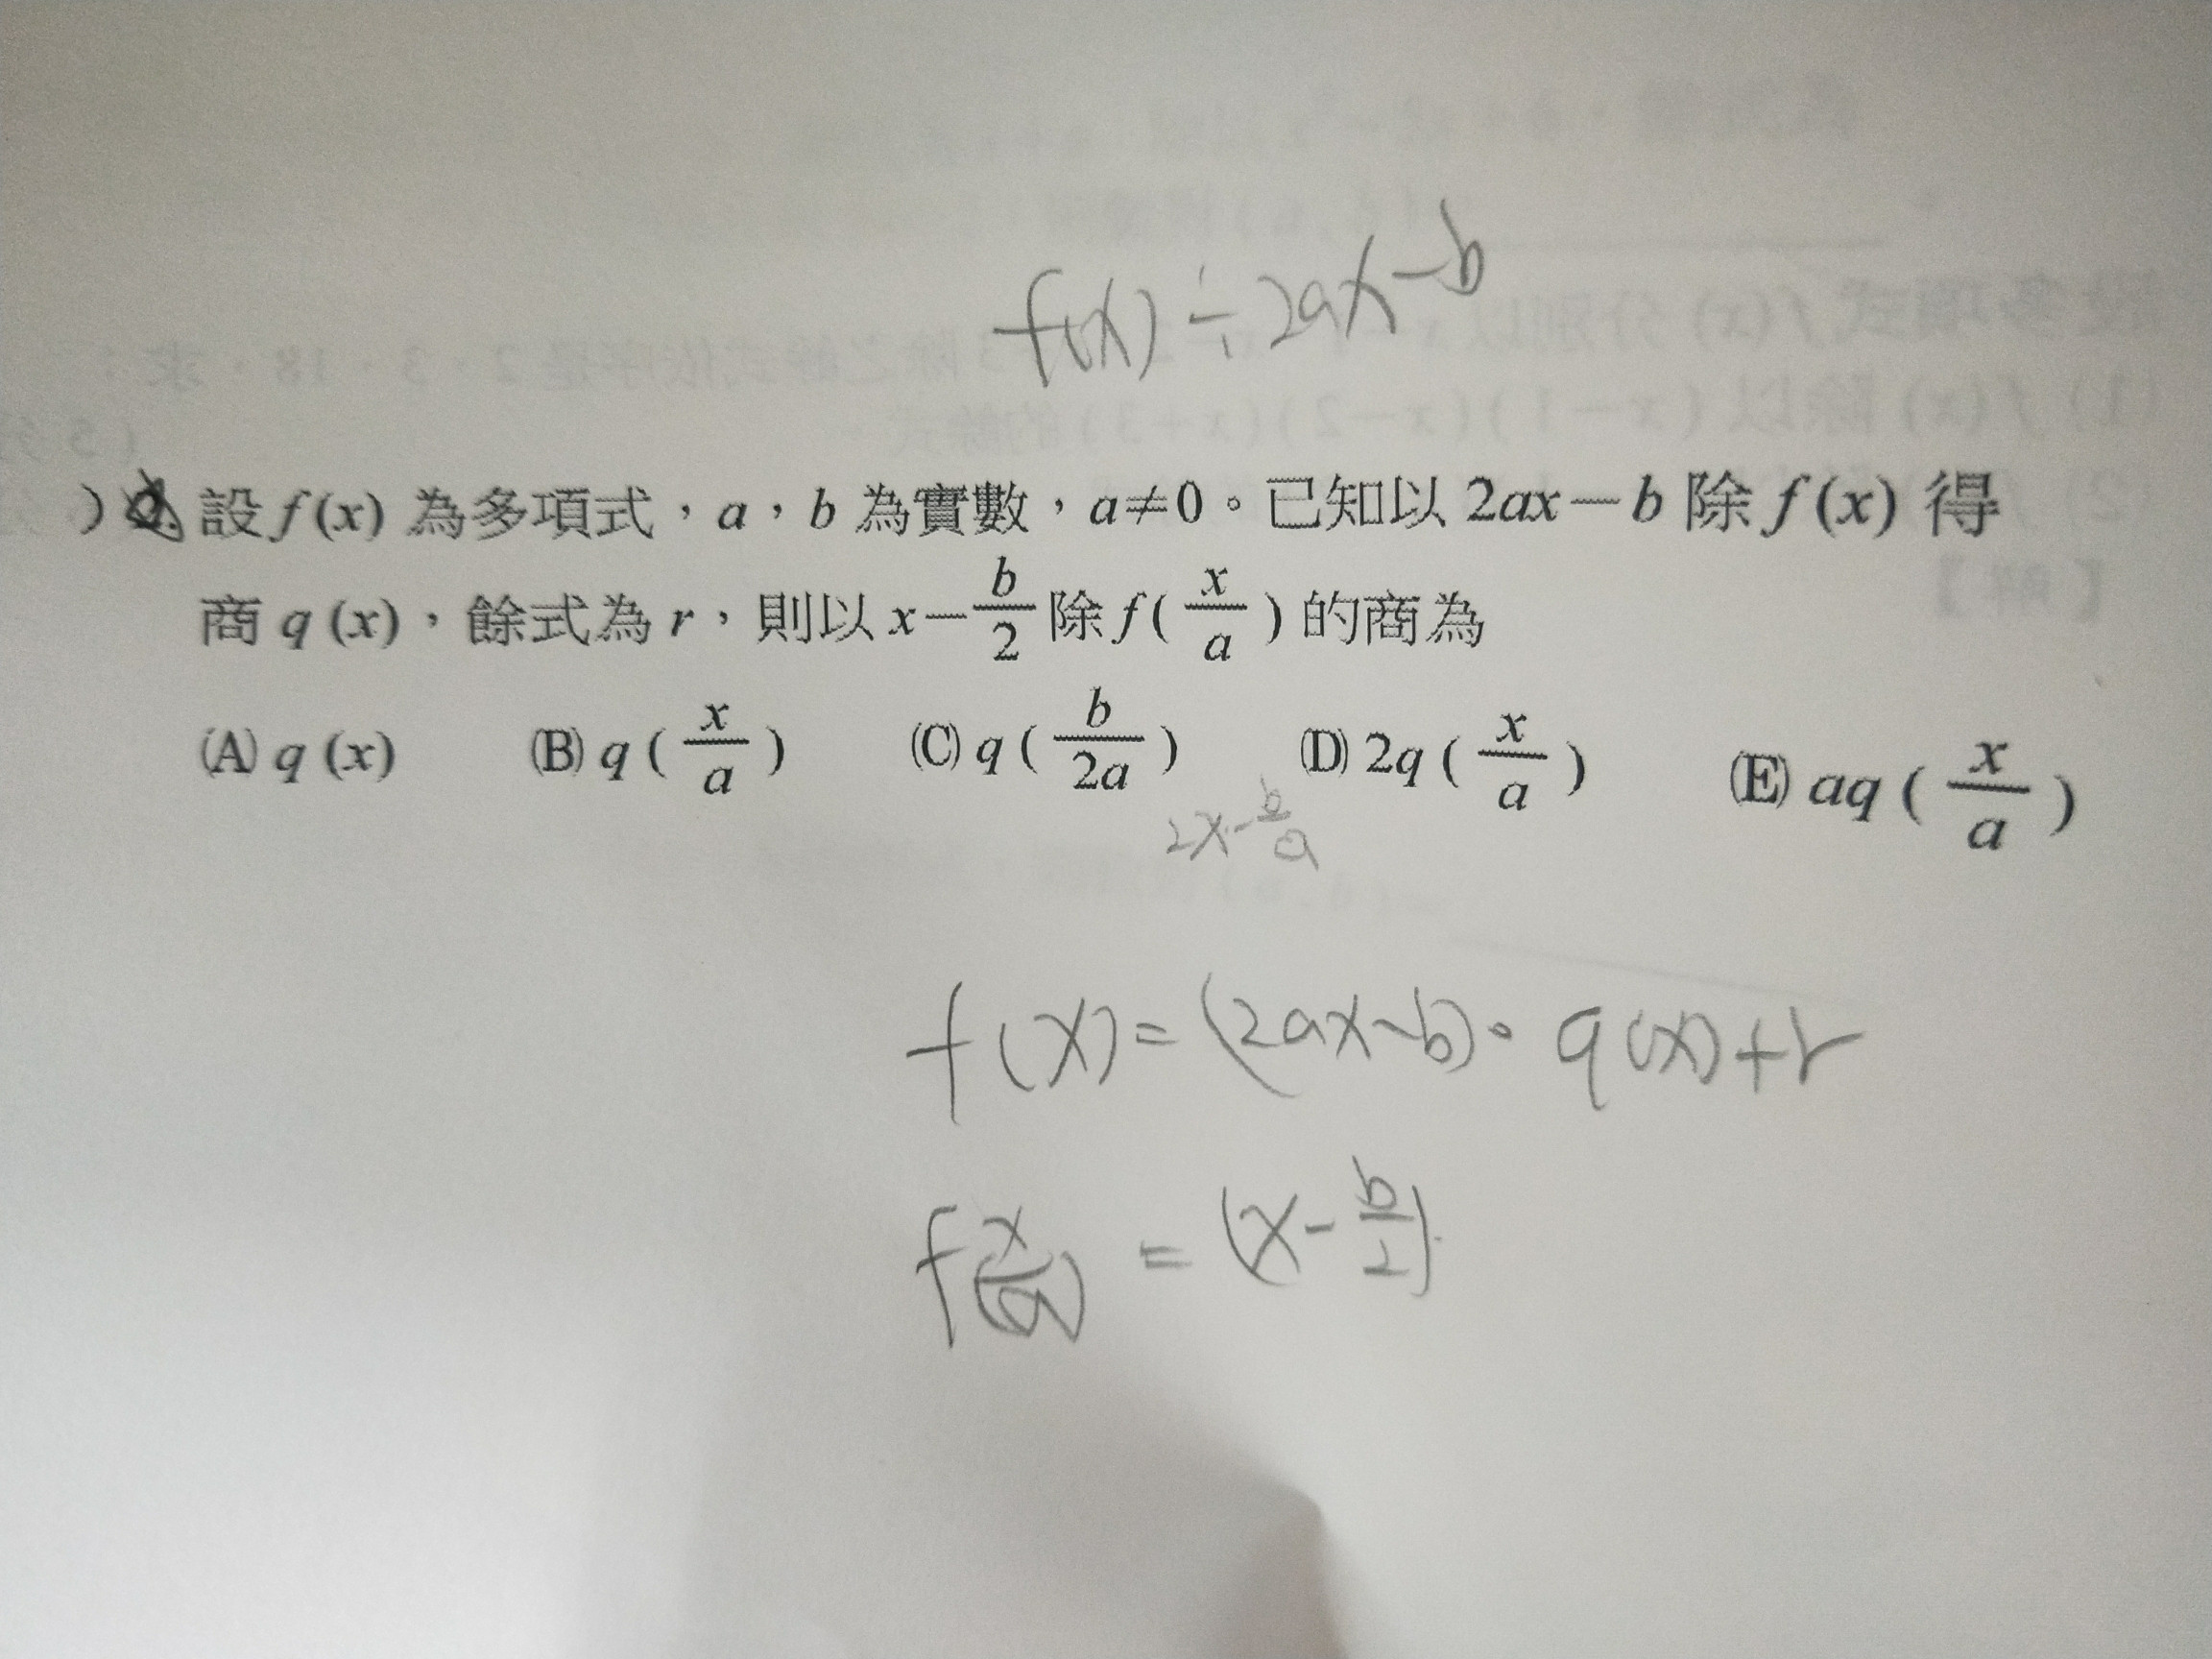 f(x)÷2ax-b
) 設 f(x) 為多項式，a，b 為實數，a≠0。已知以 2ax－b 除 f(x) 得
商 q(x)，餘式為 r，則以 x－b/2 除 f(x/a) 的商為
(A) q(x) (B) q(x/a) (C) q(b/2a) (D) 2q(x/a) (E) aq(x/a)
2x-b/a
f(x)=(2ax-b)·q(x)+r
f(x/a)=(x-b/2)·